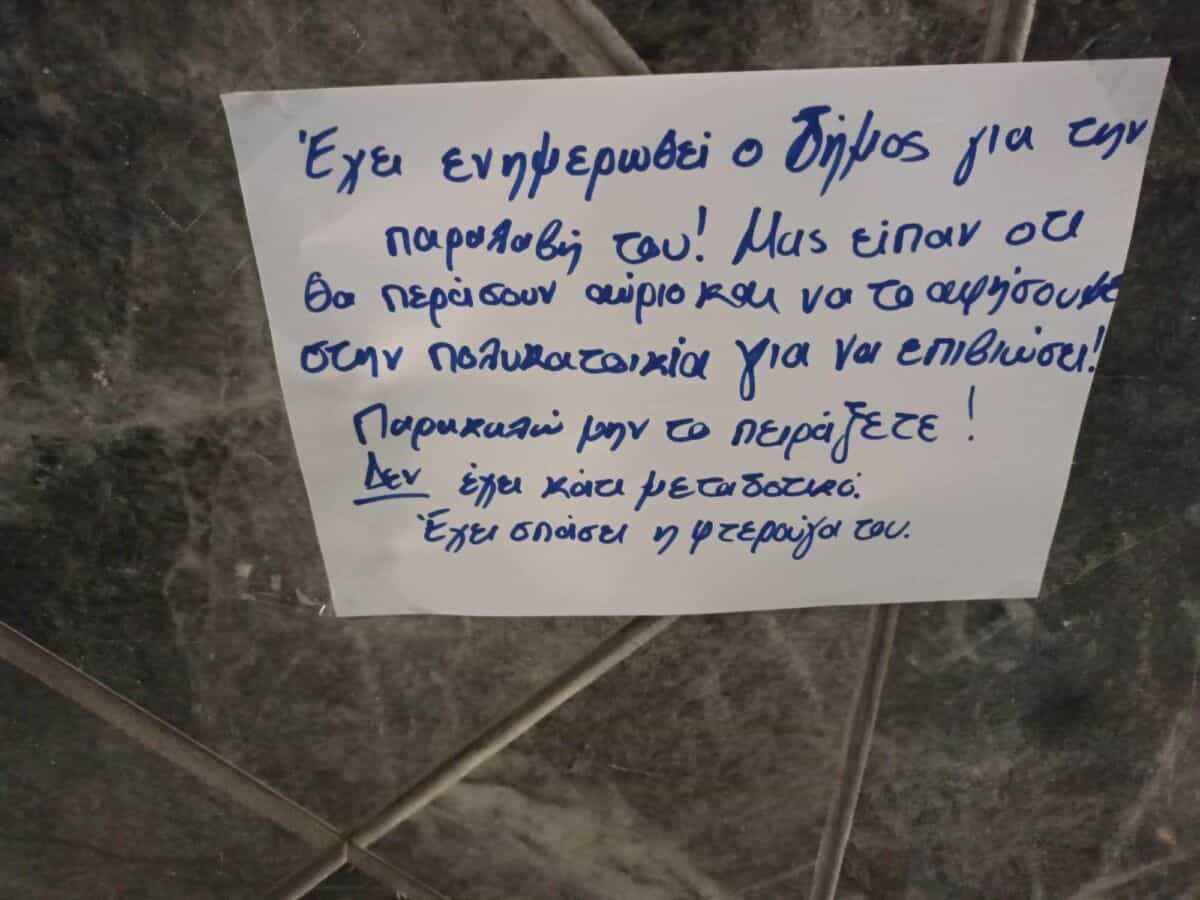 Έχει ενημερωθεί ο δήμος για την
παραλαβή του! Μας είπαν οτι
θα περάσουν αύριο και να το αφήσουμε
στην πολυκατοικία για να επιβιώσει!
Παρακαλώ μην το πειράξετε!
Δεν έχει κάτι μεταδοτικό.
Έχει σπάσει η φτερούγα του.